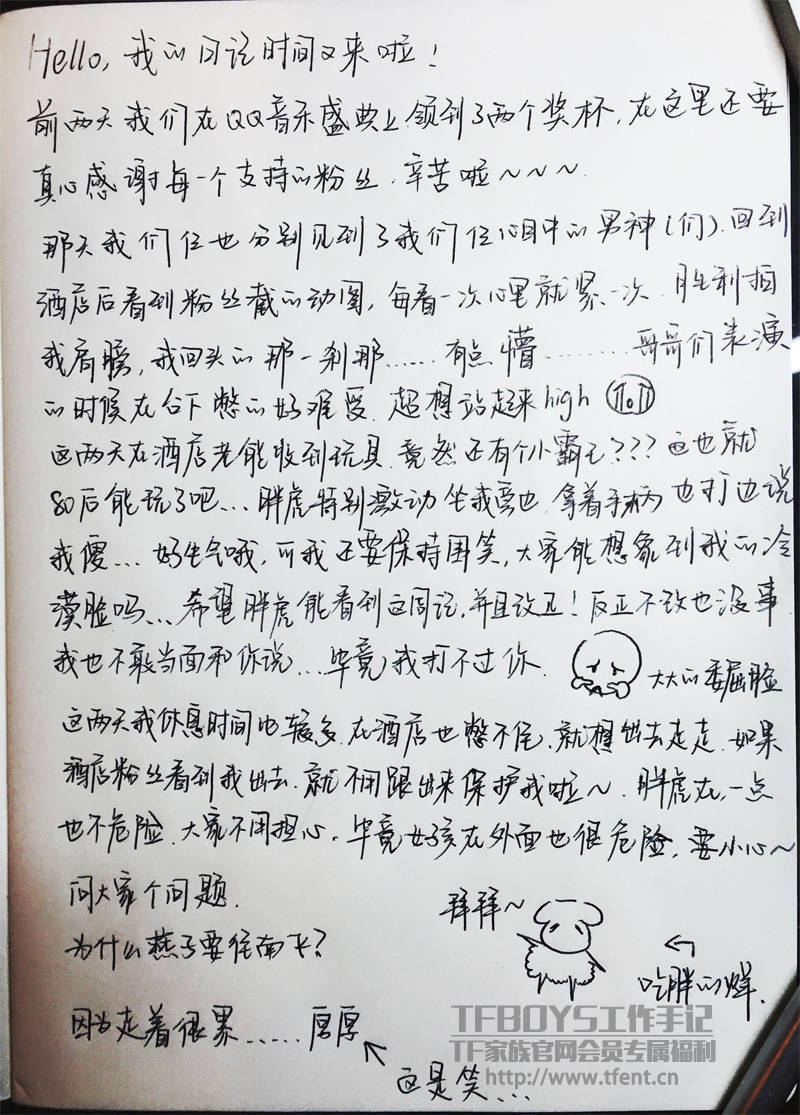 Hello, 我的周记时间又来啦!
前两天我们在QQ音乐盛典上领到了两个奖杯,在这里还要
真心感谢每一个支持的粉丝.辛苦啦~~~
那天我们仨也分别见到了我们仨心目中的男神(们).回到
酒店后看到粉丝截的动图,每看一次心里就紧一次.胜利拍
我肩膀,我回头的那一刹那……有点懵………哥哥们表演
的时候在台下憋的好难受.超想站起来high
这两天在酒店老能收到玩具.竟然还有个小霸王???这也就
80后能玩了吧...胖虎特别激动坐我旁边.拿着手柄边打边说
我傻...好生气哦,可我还要保持围笑,大家能想象到我的冷
漠脸吗...希望胖虎能看到这周记,并且改正!反正不改也没事
我也不敢当面和你说...毕竟我打不过你.
大大的委屈脸
这两天我休息时间比较多.在酒店也憋不住,就想出去走走.如果
酒店粉丝看到我出去.就不用跟出来保护我啦~.胖虎在,一点
也不危险.大家不用担心.毕竟女孩在外面也很危险,要小心~
问大家个问题.
为什么燕子要往南飞?
拜拜~
吃胖的烊.
因为走着很累……厚厚
这是笑...
TFBOYS工作手记
TF家族官网会员专属福利
http://www.tfent.cn